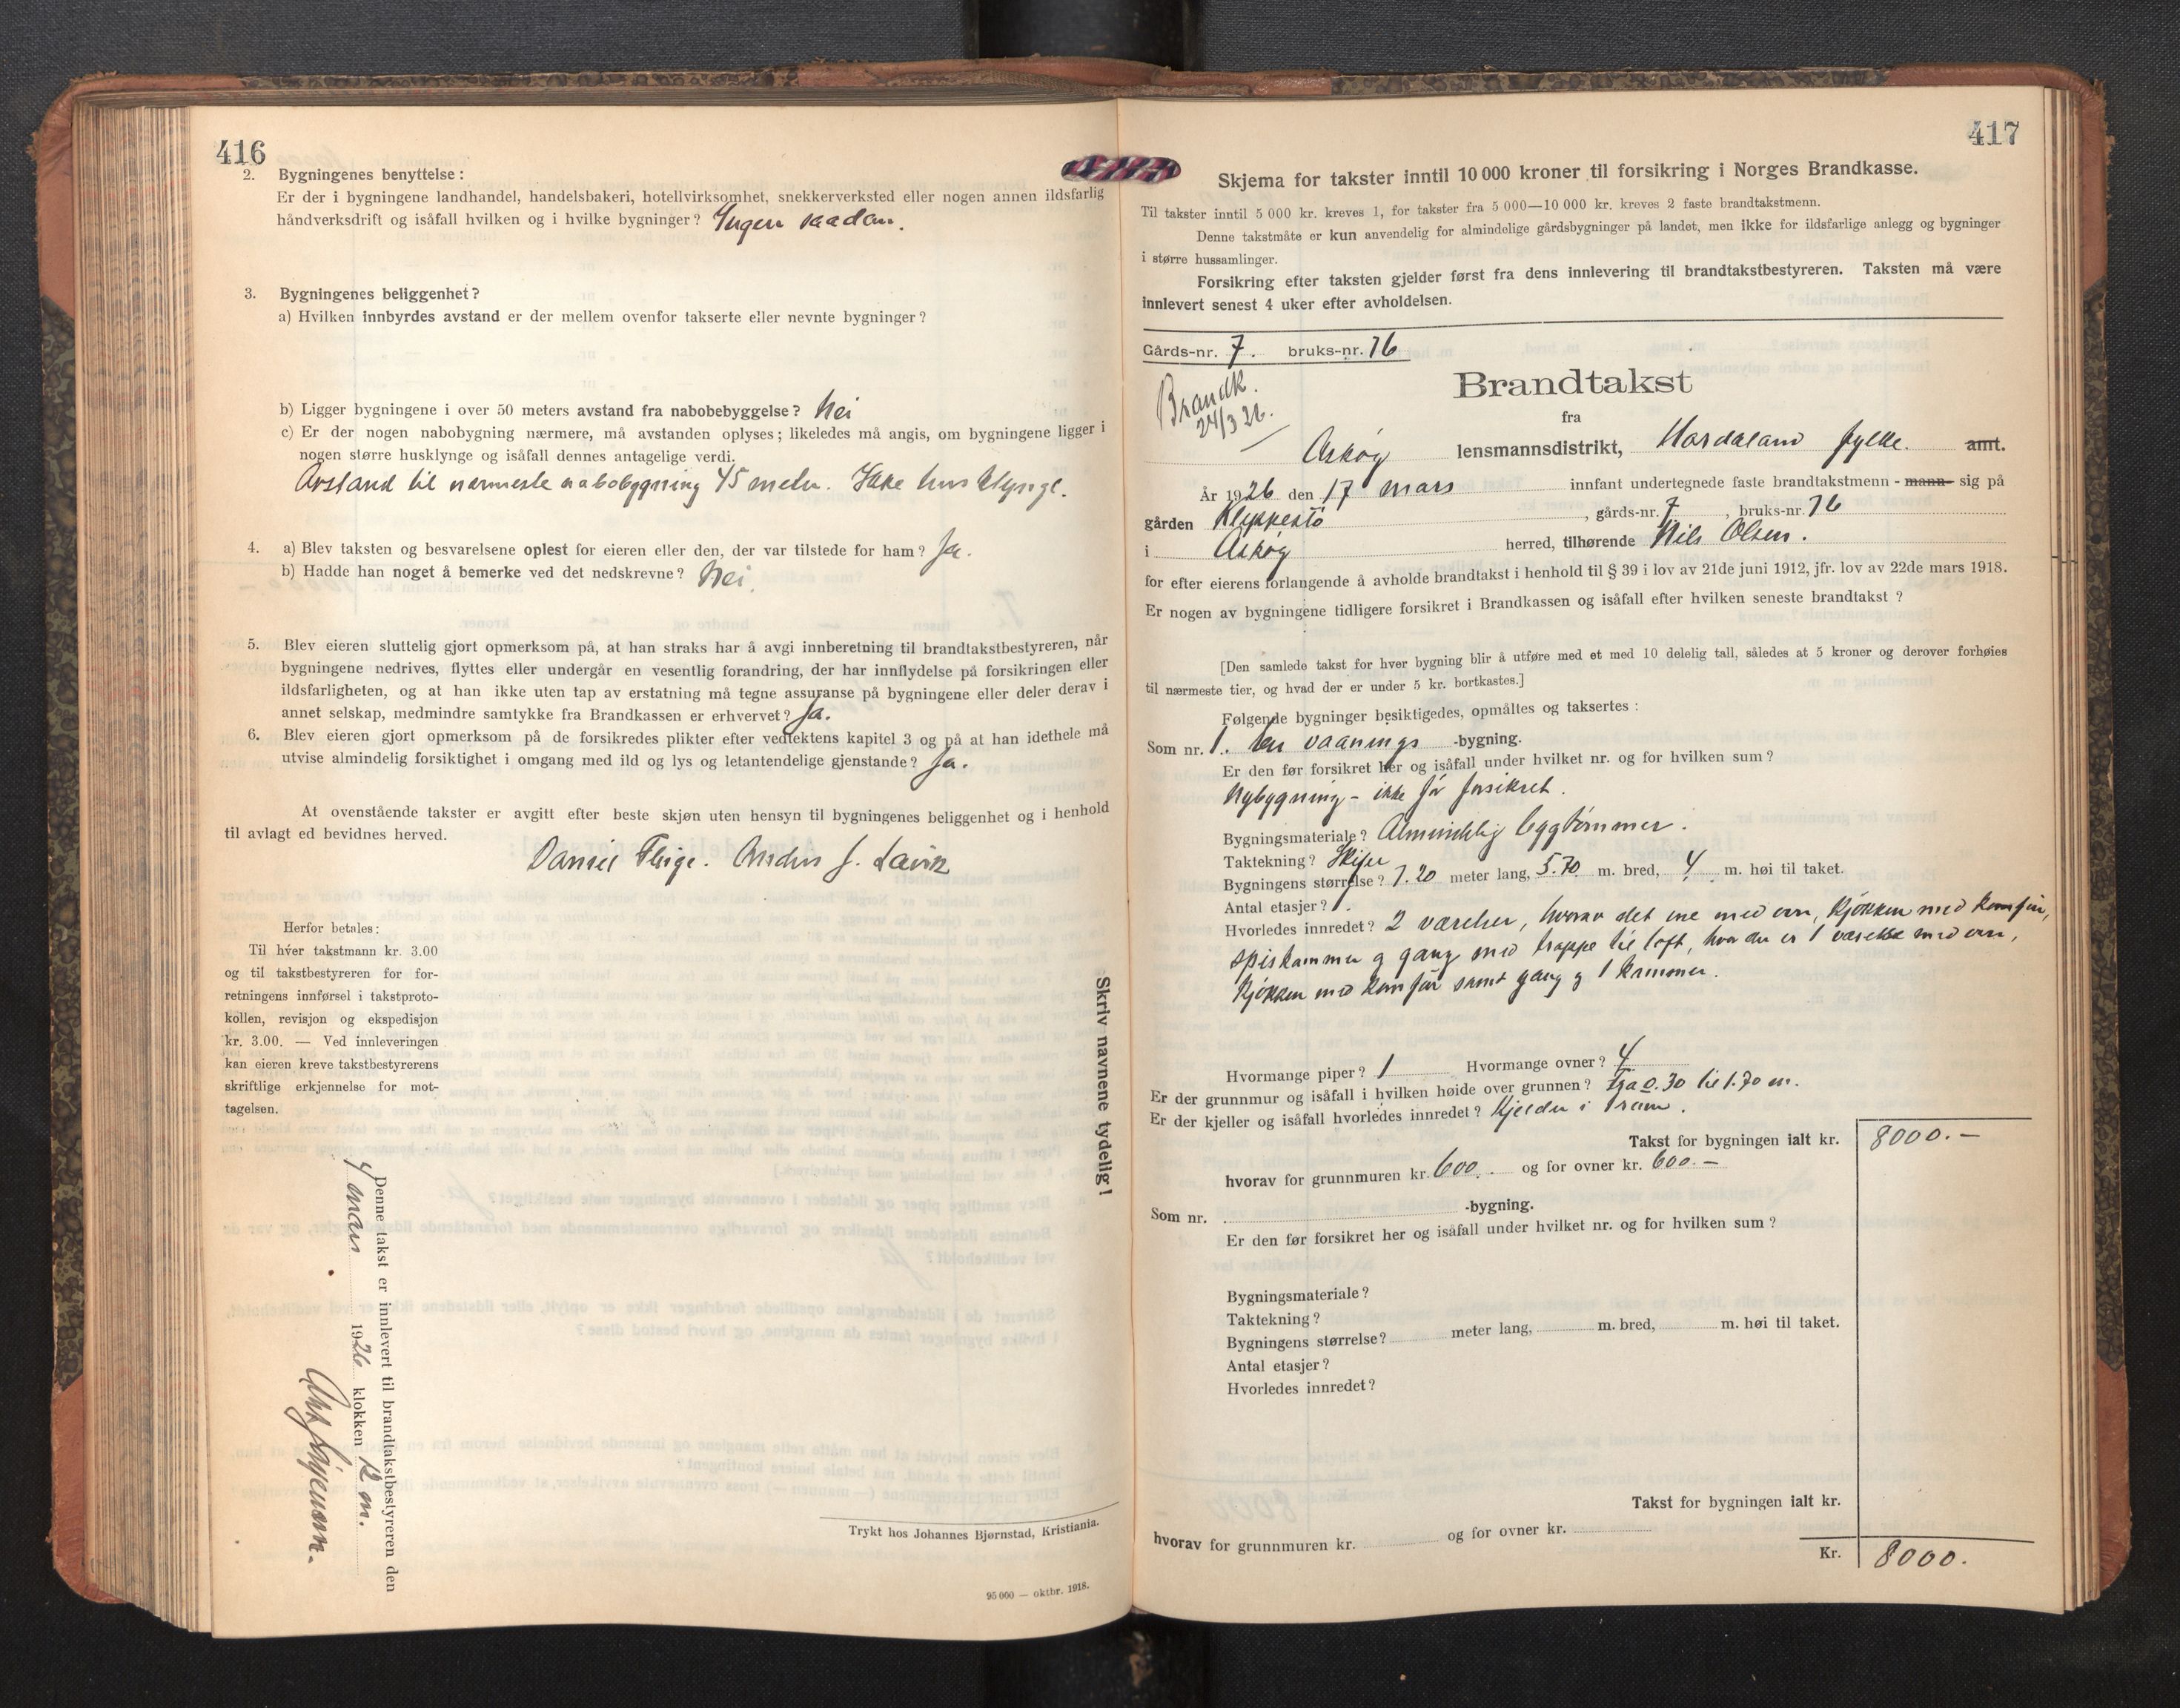 416
2. Bygningenes benyttelse:
Er der i bygningene landhandel, handelsbakeri, hotellvirksomhet, snekkerverksted eller nogen annen ildsfarlig
håndverksdrift og isåfall hvilken og i hvilke bygninger? Ingen saadan.
3. Bygningenes beliggenhet?
a) Hvilken innbyrdes avstand er der mellem ovenfor takserte eller nevnte bygninger?
b) Ligger bygningene i over 50 meters avstand fra nabobebyggelse? Nei
c) Er der nogen nabobygning nærmere, må avstanden oplyses; likeledes må angis, om bygningene ligger i
nogen større husklynge og isåfall dennes antagelige verdi.
Avstand til nærmeste nabobygning 45 meter. Ikke hus klynge.
4. a) Blev taksten og besvarelsene oplest for eieren eller den, der var tilstede for ham? Ja.
b) Hadde han noget å bemerke ved det nedskrevne? Nei.
5. Blev eieren sluttelig gjort opmerksom på, at han straks har å avgi innberetning til brandtakstbestyreren, når
bygningene nedrives, flyttes eller undergår en vesentlig forandring, der har innflydelse på forsikringen eller
ildsfarligheten, og at han ikke uten tap av erstatning må tegne assuranse på bygningene eller deler derav i
annet selskap, medmindre samtykke fra Brandkassen er erhvervet? Ja.
6. Blev eieren gjort opmerksom på de forsikredes plikter efter vedtektens kapitel 3 og på at han idethele må
utvise almindelig forsiktighet i omgang med ild og lys og letantendelige gjenstande? Ja.
At ovenstående takster er avgitt efter beste skjøn uten hensyn til bygningenes beliggenhet og i henhold
til avlagt ed bevidnes herved.
Daniel J. Lavik
Herfor betales:
Til hver takstmann kr. 3.00
og til takstbestyreren for for-
retningens innførsel i takstproto-
kollen, revisjon og ekspedisjon
kr. 3.00. — Ved innleveringen
kan eieren kreve takstbestyrerens
skriftlige erkjennelse for mot-
tagelsen.
Skriv navnene tydelig!
Denne takst er innlevert til brandtakstbestyreren den
mars 1926 klokken 12 m.
Trykt hos Johannes Bjørnstad, Kristiania.
95 000 — oktbr. 1918.
417
Skjema for takster inntil 10 000 kroner til forsikring i Norges Brandkasse.
Til takster inntil 5 000 kr. kreves 1, for takster fra 5 000—10 000 kr. kreves 2 faste brandtakstmenn.
Denne takstmåte er kun anvendelig for almindelige gårdsbygninger på landet, men ikke for ildsfarlige anlegg og bygninger
i større hussamlinger.
Forsikring efter taksten gjelder først fra dens innlevering til brandtakstbestyreren. Taksten må være
innlevert senest 4 uker efter avholdelsen.
Gårds-nr. 7. bruks-nr. 76
Brandk.
24/3 26.
Brandtakst
fra
Askøy lensmannsdistrikt, Hordaland fylke. amt.
År 1926 den 17 mars innfant undertegnede faste brandtakstmenn - mann- sig på
gården Kleppestø, gårds-nr. 7, bruks-nr. 76
i Askøy herred, tilhørende Nils Olsen.
for efter eierens forlangende å avholde brandtakst i henhold til § 39 i lov av 21de juni 1912, jfr. lov av 22de mars 1918.
Er nogen av bygningene tidligere forsikret i Brandkassen og isåfall efter hvilken seneste brandtakst?
[Den samlede takst for hver bygning blir å utføre med et med 10 delelig tall, således at 5 kroner og derover forhøies
til nærmeste tier, og hvad der er under 5 kr. bortkastes.]
Følgende bygninger besiktigedes, opmåltes og taksertes:
Som nr. 1. en vaanings -bygning.
Er den før forsikret her og isåfall under hvilket nr. og for hvilken sum?
Nybygning - ikke før forsikret.
Bygningsmateriale? Almindelig byggtømmer.
Taktekning? Skifer
Bygningens størrelse? 7.20 meter lang, 5.70 m. bred, 4 m. høi til taket.
Antal etasjer? 1.
Hvorledes innredet? 2 værelser, hvorav det ene med ovn, kjøkken med komfur,
spiskammer og gang med trappe til loft, hvor der er 1 værelse med ovn,
kjøkken med komfur samt gang og 1 kammer.
Hvormange piper? 1 Hvormange ovner? 4
Er der grunnmur og isåfall i hvilken høide over grunnen? Fra 0.30 til 1.70 m.
Er der kjeller og isåfall hvorledes innredet? Kjelder i 1 rum.
Takst for bygningen ialt kr. 8000.-
hvorav for grunnmuren kr. 600. og for ovner kr. 600.-
Som nr. -bygning.
Er den før forsikret her og isåfall under hvilket nr. og for hvilken sum?
Bygningsmateriale?
Taktekning?
Bygningens størrelse? meter lang, m. bred, m. høi til taket.
Antal etasjer?
Hvorledes innredet?
Takst for bygningen ialt kr.
hvorav for grunnmuren kr. og for ovner kr.
Kr. 8000.